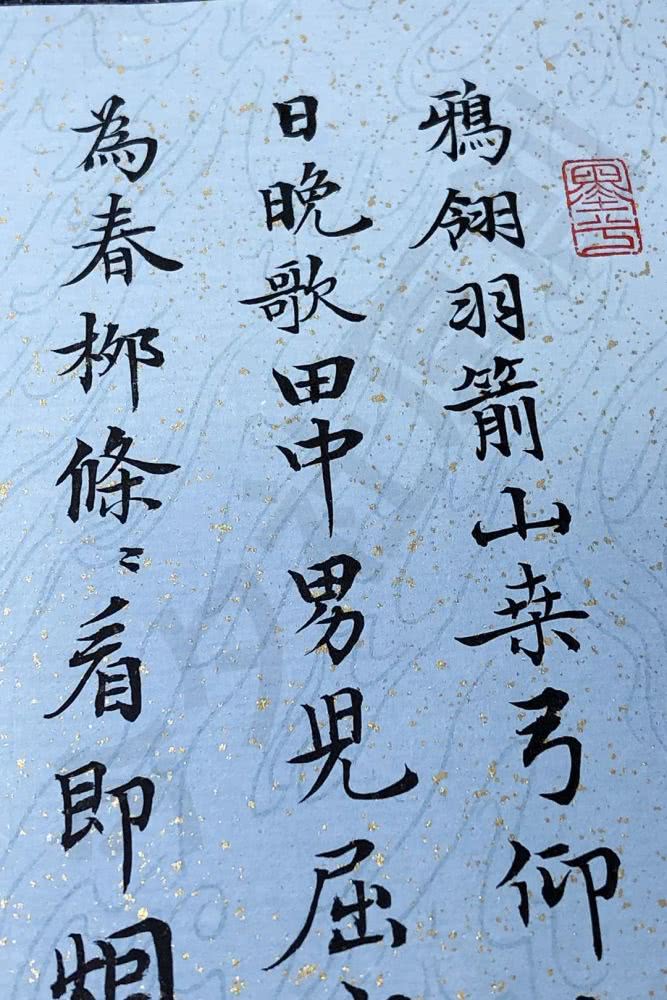 鴉翎羽箭山桒弓仰
日晚歌田中男児屈
為春柳條〻看即烟